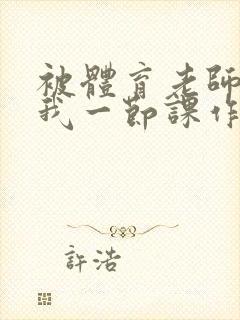 被體育老師
我一節課作
許浩